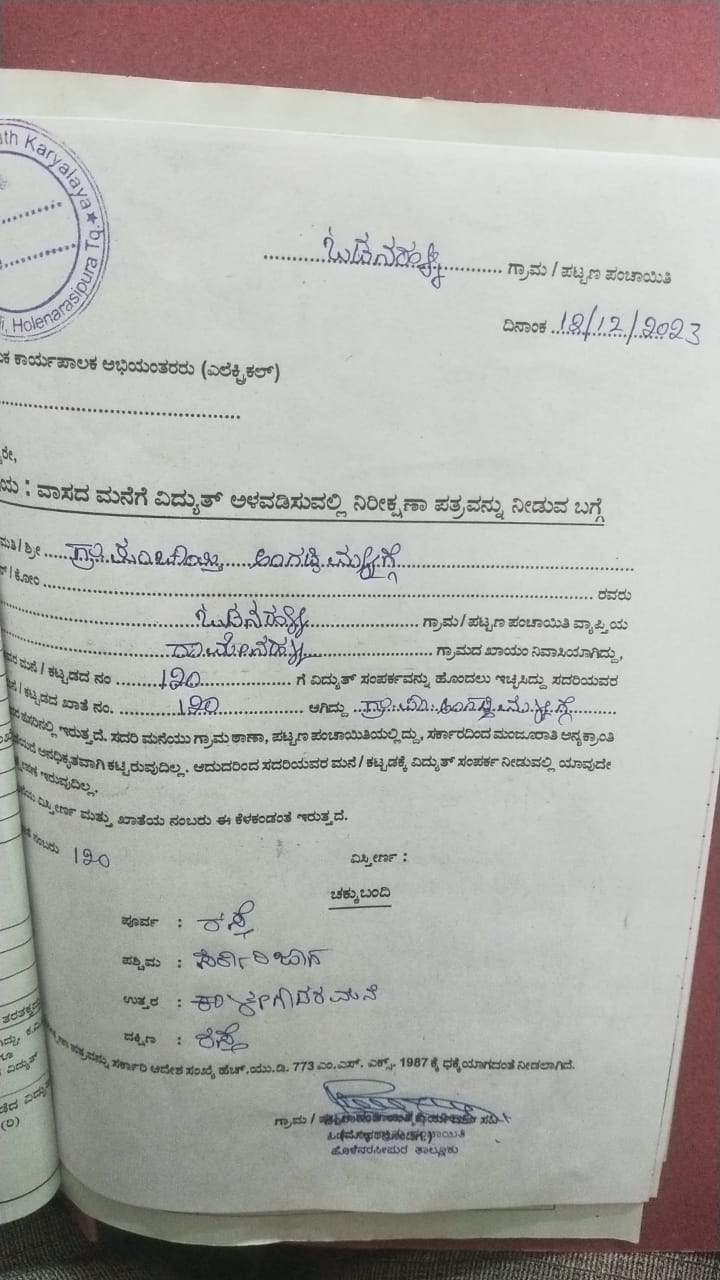 ath Karyalaya ★
i, Holenarasipura Tq.
ಒಡನಹಳ್ಳಿ ಗ್ರಾಮ / ಪಟ್ಟಣ ಪಂಚಾಯಿತಿ
ದಿನಾಂಕ 18/12/2023
ಕ ಕಾರ್ಯಪಾಲಕ ಅಭಿಯಂತರರು (ಎಲೆಕ್ಟ್ರಿಕಲ್)
ರೇ,
ಯ : ವಾಸದ ಮನೆಗೆ ವಿದ್ಯುತ್ ಅಳವಡಿಸುವಲ್ಲಿ ನಿರೀಕ್ಷಣಾ ಪತ್ರವನ್ನು ನೀಡುವ ಬಗ್ಗೆ
ಮತಿ / ಶ್ರೀ ಅಂಗಡಿ ಮಳಿಗೆ
/ ಕೋಂ ರವರು
ಒಡನಹಳ್ಳಿ ಗ್ರಾಮ / ಪಟ್ಟಣ ಪಂಚಾಯಿತಿ ವ್ಯಾಪ್ತಿಯ
ಗ್ರಾಮದ ಖಾಯಂ ನಿವಾಸಿಯಾಗಿದ್ದು,
ಮನೆ / ಕಟ್ಟಡದ ನಂ 120 ಗೆ ವಿದ್ಯುತ್ ಸಂಪರ್ಕವನ್ನು ಹೊಂದಲು ಇಚ್ಛಿಸಿದ್ದು ಸದರಿಯವರ
/ ಕಟ್ಟಡದ ಖಾತೆ ನಂ. 120 ಆಗಿದ್ದು ಗ್ರಾ.ಪಂ. ಅಂಗಡಿ ಮಳಿಗೆ
ಇರುತ್ತದೆ. ಸದರಿ ಮನೆಯು ಗ್ರಾಮ ಠಾಣಾ, ಪಟ್ಟಣ ಪಂಚಾಯಿತಿಯಲ್ಲಿದ್ದು, ಸರ್ಕಾರದಿಂದ ಮಂಜೂರಾತಿ ಅನ್ಯಕ್ರಾಂತಿ
ಅನಧಿಕೃತವಾಗಿ ಕಟ್ಟಿರುವುದಿಲ್ಲ. ಆದುದರಿಂದ ಸದರಿಯವರ ಮನೆ / ಕಟ್ಟಡಕ್ಕೆ ವಿದ್ಯುತ್ ಸಂಪರ್ಕ ನೀಡುವಲ್ಲಿ ಯಾವುದೇ
ಇರುವುದಿಲ್ಲ.
ವಿಸ್ತೀರ್ಣ ಮತ್ತು ಖಾತೆಯ ನಂಬರು ಈ ಕೆಳಕಂಡಂತೆ ಇರುತ್ತದೆ.
ನಂಬರು 120 ವಿಸ್ತೀರ್ಣ :
ಚಕ್ಕುಬಂದಿ
ಪೂರ್ವ : ರಸ್ತೆ
ಪಶ್ಚಿಮ : ಸರ್ಕಾರಿ ಜಾಗ
ಉತ್ತರ : ಮನೆ
ದಕ್ಷಿಣ : ರಸ್ತೆ
ಪತ್ರವನ್ನು ಸರ್ಕಾರಿ ಆದೇಶ ಸಂಖ್ಯೆ ಹೆಚ್.ಯು.ಡಿ. 773 ಎಂ.ಎಸ್. ಎಕ್ಸ್. 1987 ಕ್ಕೆ ಧಕ್ಕೆಯಾಗದಂತೆ ನೀಡಲಾಗಿದೆ.
ಗ್ರಾಮ /
ಹೊಳೆನರಸೀಪುರ ತಾಲ್ಲೂಕು